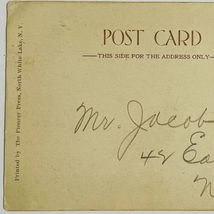 POST CARD
THIS SIDE FOR THE ADDRESS ONLY
Mr. Jacob
42 Ea
N
Printed by The Pioneer Press, North White Lake, N. Y.